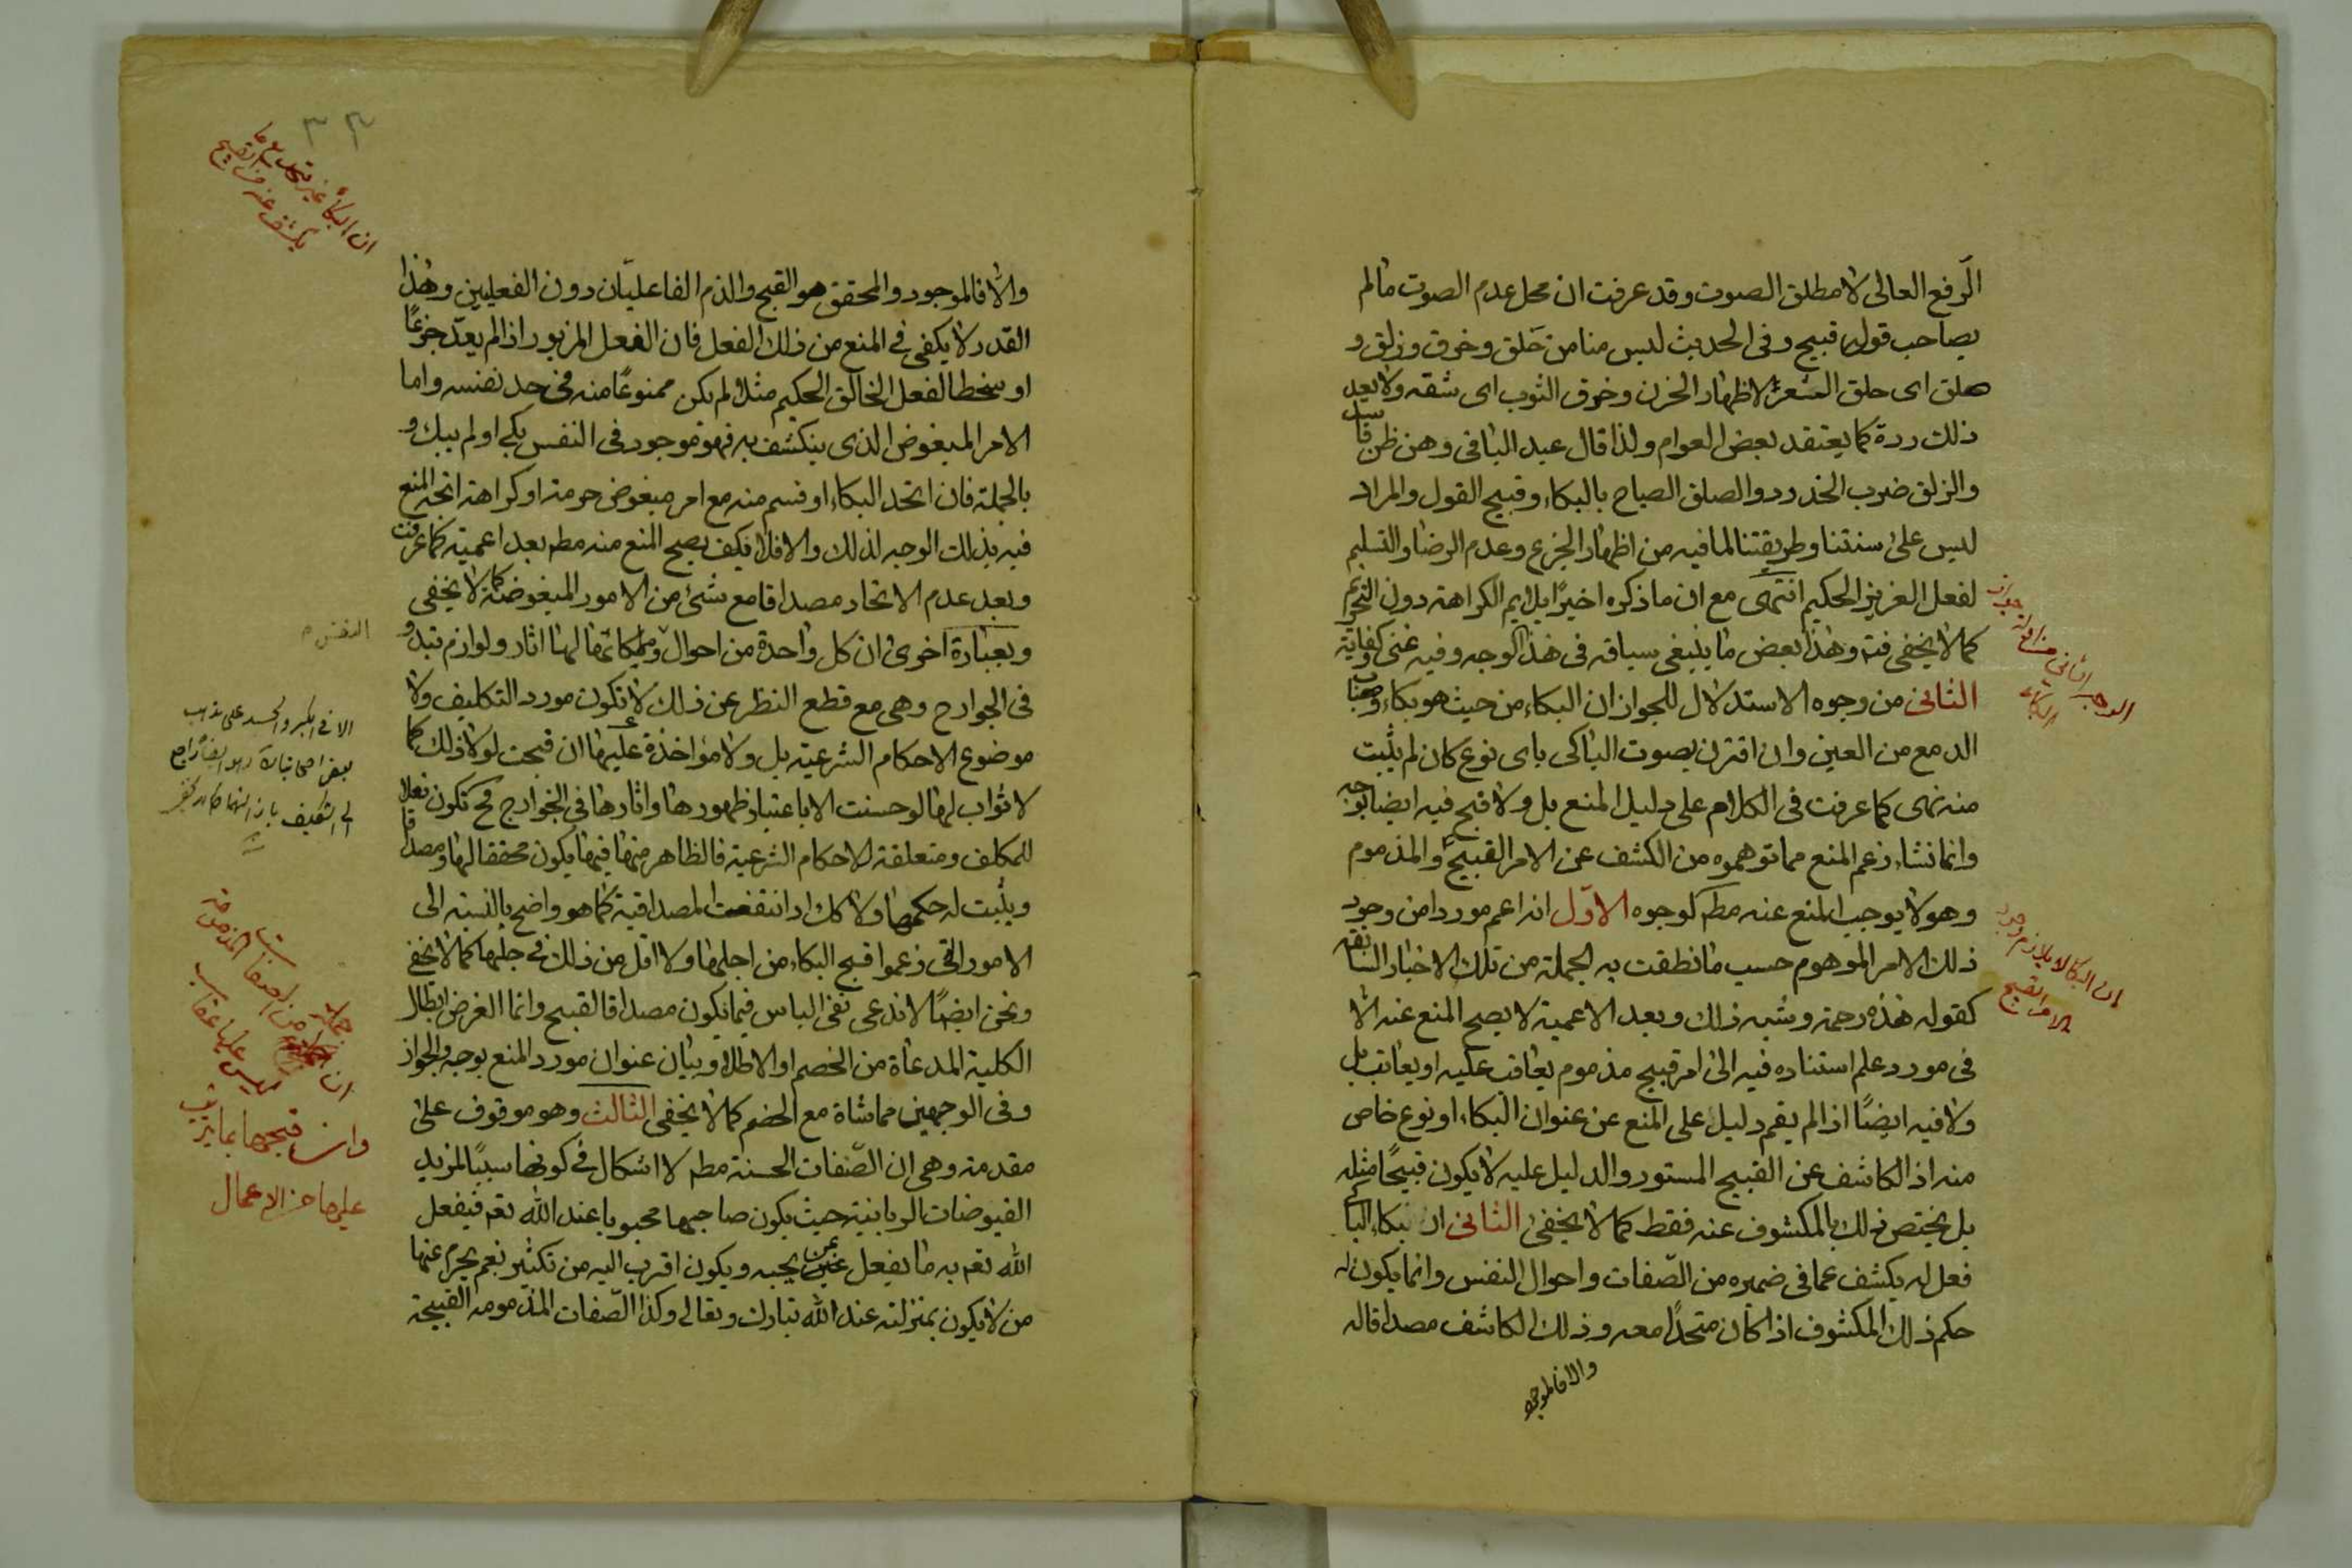 الرفع العالى لا مطلق الصوت وقد عرفت ان محل عدم الصوت مالم
يصاحب قول قبيح وفى الحديث ليس منا من حَلق وخرق وزلق و
هلق اى حلق الشعر لاظهار الحزن وخرق الثوب اى شقه ولا يعد
ذلك ردة كما يعتقد بعض العوام ولذا قال عبد الباقى وهن ظن
والزلق ضرب الخدود والصلق الصياح بالبكاء وقبيح القول والمراد
ليس على سنتنا وطريقتنا لما فيه من اظهار الجزع وعدم الرضا والتسليم
لفعل العزيز الحكيم انتهى مع ان ما ذكره اخيرًا يلايم الكراهة دون التحريم
كما لا يخفى فتم وهذا بعض ما ينبغى سياقه فى هذا الوجه وفيه غنى وكفاية
الثانى من وجوه الاستدلال للجواز ان البكاء من حيث هو بكاء
الدمع من العين وان اقترن بصوت الباكى باى نوع كان لم يثبت
منه نهى كما عرفت فى الكلام على دليل المنع بل ولا قبح فيه ايضا بوجه
وانما نشاء زعم المنع مما توهموه من الكشف عن الامر القبيح والمذموم
وهو لا يوجب المنع عنه مطم لوجوه الاوّل انه اعم موردا من وجود
ذلك الامر الموهوم حسب ما نطقت به الجملة من تلك الاخبار السابقة
كقوله هذه رحمة وشبه ذلك وبعد الاعمية لا يصح المنع عنه الا
فى مورد علم استناده فيه الى امر قبيح مذموم يعاقب عليه او يعاتب بل
ولا فيه ايضًا اذا لم يقم دليل على المنع عن عنوان البكاء او نوع خاص
منه اذ الكاشف عن القبيح المستور والدليل عليه لا يكون قبيحًا مثله
بل يختص ذلك بالمكشوف عنه فقط كما لا يخفى الثانى ان بكاء الباكى
فعل له يكشف عما فى ضميره من الصّفات واحوال النفس وانما يكون له
حكم ذلك المكشوف اذا كان متحدًا معه وذلك الكاشف مصداقا له
والا فالموجود
الوجه الثانى من جواز
البكاء
ان البكا لا يلازم وجود
الامر القبيح
٣٣
ان البكاء غير متحد مع ما
يكشف عنه من القبيح
والا فالموجود والمحقق هو القبح والذم الفاعليّان دون الفعليين وهذا
القدر لا يكفى فى المنع من ذلك الفعل فان الفعل المزبور اذا لم يعدّ جزعًا
او سخطا لفعل الخالق الحكيم مثلا لم يكن ممنوعًا منه فى حد نفسه واما
الامر المبغوض الذى ينكشف به فهو موجود فى النفس بكى او لم يبك و
بالجملة فان اتحد البكاء او قسم منه مع امر مبغوض حرمة او كراهة اتجه المنع
فيه بذلك الوجه لذلك والا فلا فكيف يصح المنع منه مطم بعد اعميته كما عرفت
وبعد عدم الاتحاد مصداقا مع شئ من الامور المبغوضة كما لا يخفى
وبعبارة اخرى ان كل واحدة من احوال وملكاتها لها اثار ولوازم تبدو
النفس م
فى الجوارح وهى مع قطع النظر عن ذلك لا تكون مورد التكليف ولا
موضوع الاحكام الشرعية بل ولا مؤاخذة عليها ان قبحت لولا ذلك كما
لا ثواب لها لو حسنت الا باعتبار ظهورها واثارها فى الجوارح فح تكون فعلا
للمكلف ومتعلقة للاحكام الشرعية فالظاهر منها فيها يكون محققا لها ومصداقا
ويثبت له حكمها ولا كك اذا انتفت المصداقية كما هو واضح بالنسبة الى
الامور التى زعموا قبح البكاء من اجلها ولا اقل من ذلك فى جلها كما لا يخفى
ونحن ايضًا لا ندعى نفى الباس فيما يكون مصداقا لقبيح وانما الغرض ابطال
الكلية المدعاة من الخصم او الاطلاق وبيان عنوان مورد المنع بوجه والجواز
وفى الوجهين مماشاة مع الخصم كما لا يخفى الثالث وهو موقوف على
مقدمة وهى ان الصّفات الحسنة مطم لا اشكال فى كونها سببًا لمزيد
الفيوضات الربانية حيث يكون صاحبها محبوبا عند الله تعم فيفعل
الله تعم به ما يفعل بمن يحبه ويكون اقرب اليه من تكثير نعم يحرم عنها
من لا يكون بمنزلته عند الله تبارك وتعالى وكذا الصّفات المذمومة القبيحة
الا فى الكبر والحسد على مذهب
بعض اصحابنا
ان من الصفات المذمومة
ليس عليها عقاب
وانما قبحها بما يترتب
عليها من الاعمال